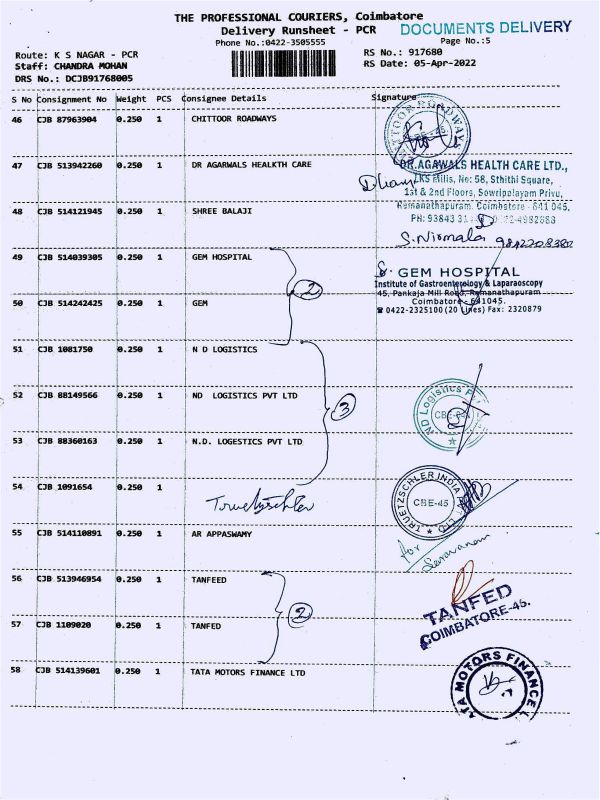 THE PROFESSIONAL COURIERS, Coimbatore
Delivery Runsheet - PCR
DOCUMENTS DELIVERY
Phone No.:0422-3505555
Page No.:5
Route: K S NAGAR - PCR
RS No.: 917680
Staff: CHANDRA MOHAN
RS Date: 05-Apr-2022
DRS No.: DCJB91768005
S No Consignment No Weight PCS Consignee Details Signature
46 CJB 87963904 0.250 1 CHITTOOR ROADWAYS
CHITTOOR ROADWAYS
CBE-45
47 CJB 513942260 0.250 1 DR AGARWALS HEALKTH CARE
DR.AGAWALS HEALTH CARE LTD.,
LKS Mills, No: 58, Sthithi Square,
1st & 2nd Floors, Sowripalayam Privu,
Ramanathapuram. Coimbatore - 641 045.
48 CJB 514121945 0.250 1 SHREE BALAJI
S. Nirmala
49 CJB 514039305 0.250 1 GEM HOSPITAL
GEM HOSPITAL
Institute of Gastroenterology & Laparoscopy
45, Pankaja Mill Road, Ramanathapuram
Coimbatore - 641045.
☎ 0422-2325100 (20 Lines) Fax: 2320879
2
50 CJB 514242425 0.250 1 GEM
51 CJB 1081750 0.250 1 N D LOGISTICS
52 CJB 88149566 0.250 1 ND LOGISTICS PVT LTD
3
ND Logistics
53 CJB 88360163 0.250 1 N.D. LOGESTICS PVT LTD
54 CJB 1091654 0.250 1
Truetzschler
TRUETZSCHLER INDIA
CBE-45
55 CJB 514110891 0.250 1 AR APPASWAMY
for
Saravanam
56 CJB 513946954 0.250 1 TANFEED
2
TANFED
COIMBATORE-45.
57 CJB 1109020 0.250 1 TANFED
58 CJB 514139601 0.250 1 TATA MOTORS FINANCE LTD
TATA MOTORS FINANCE